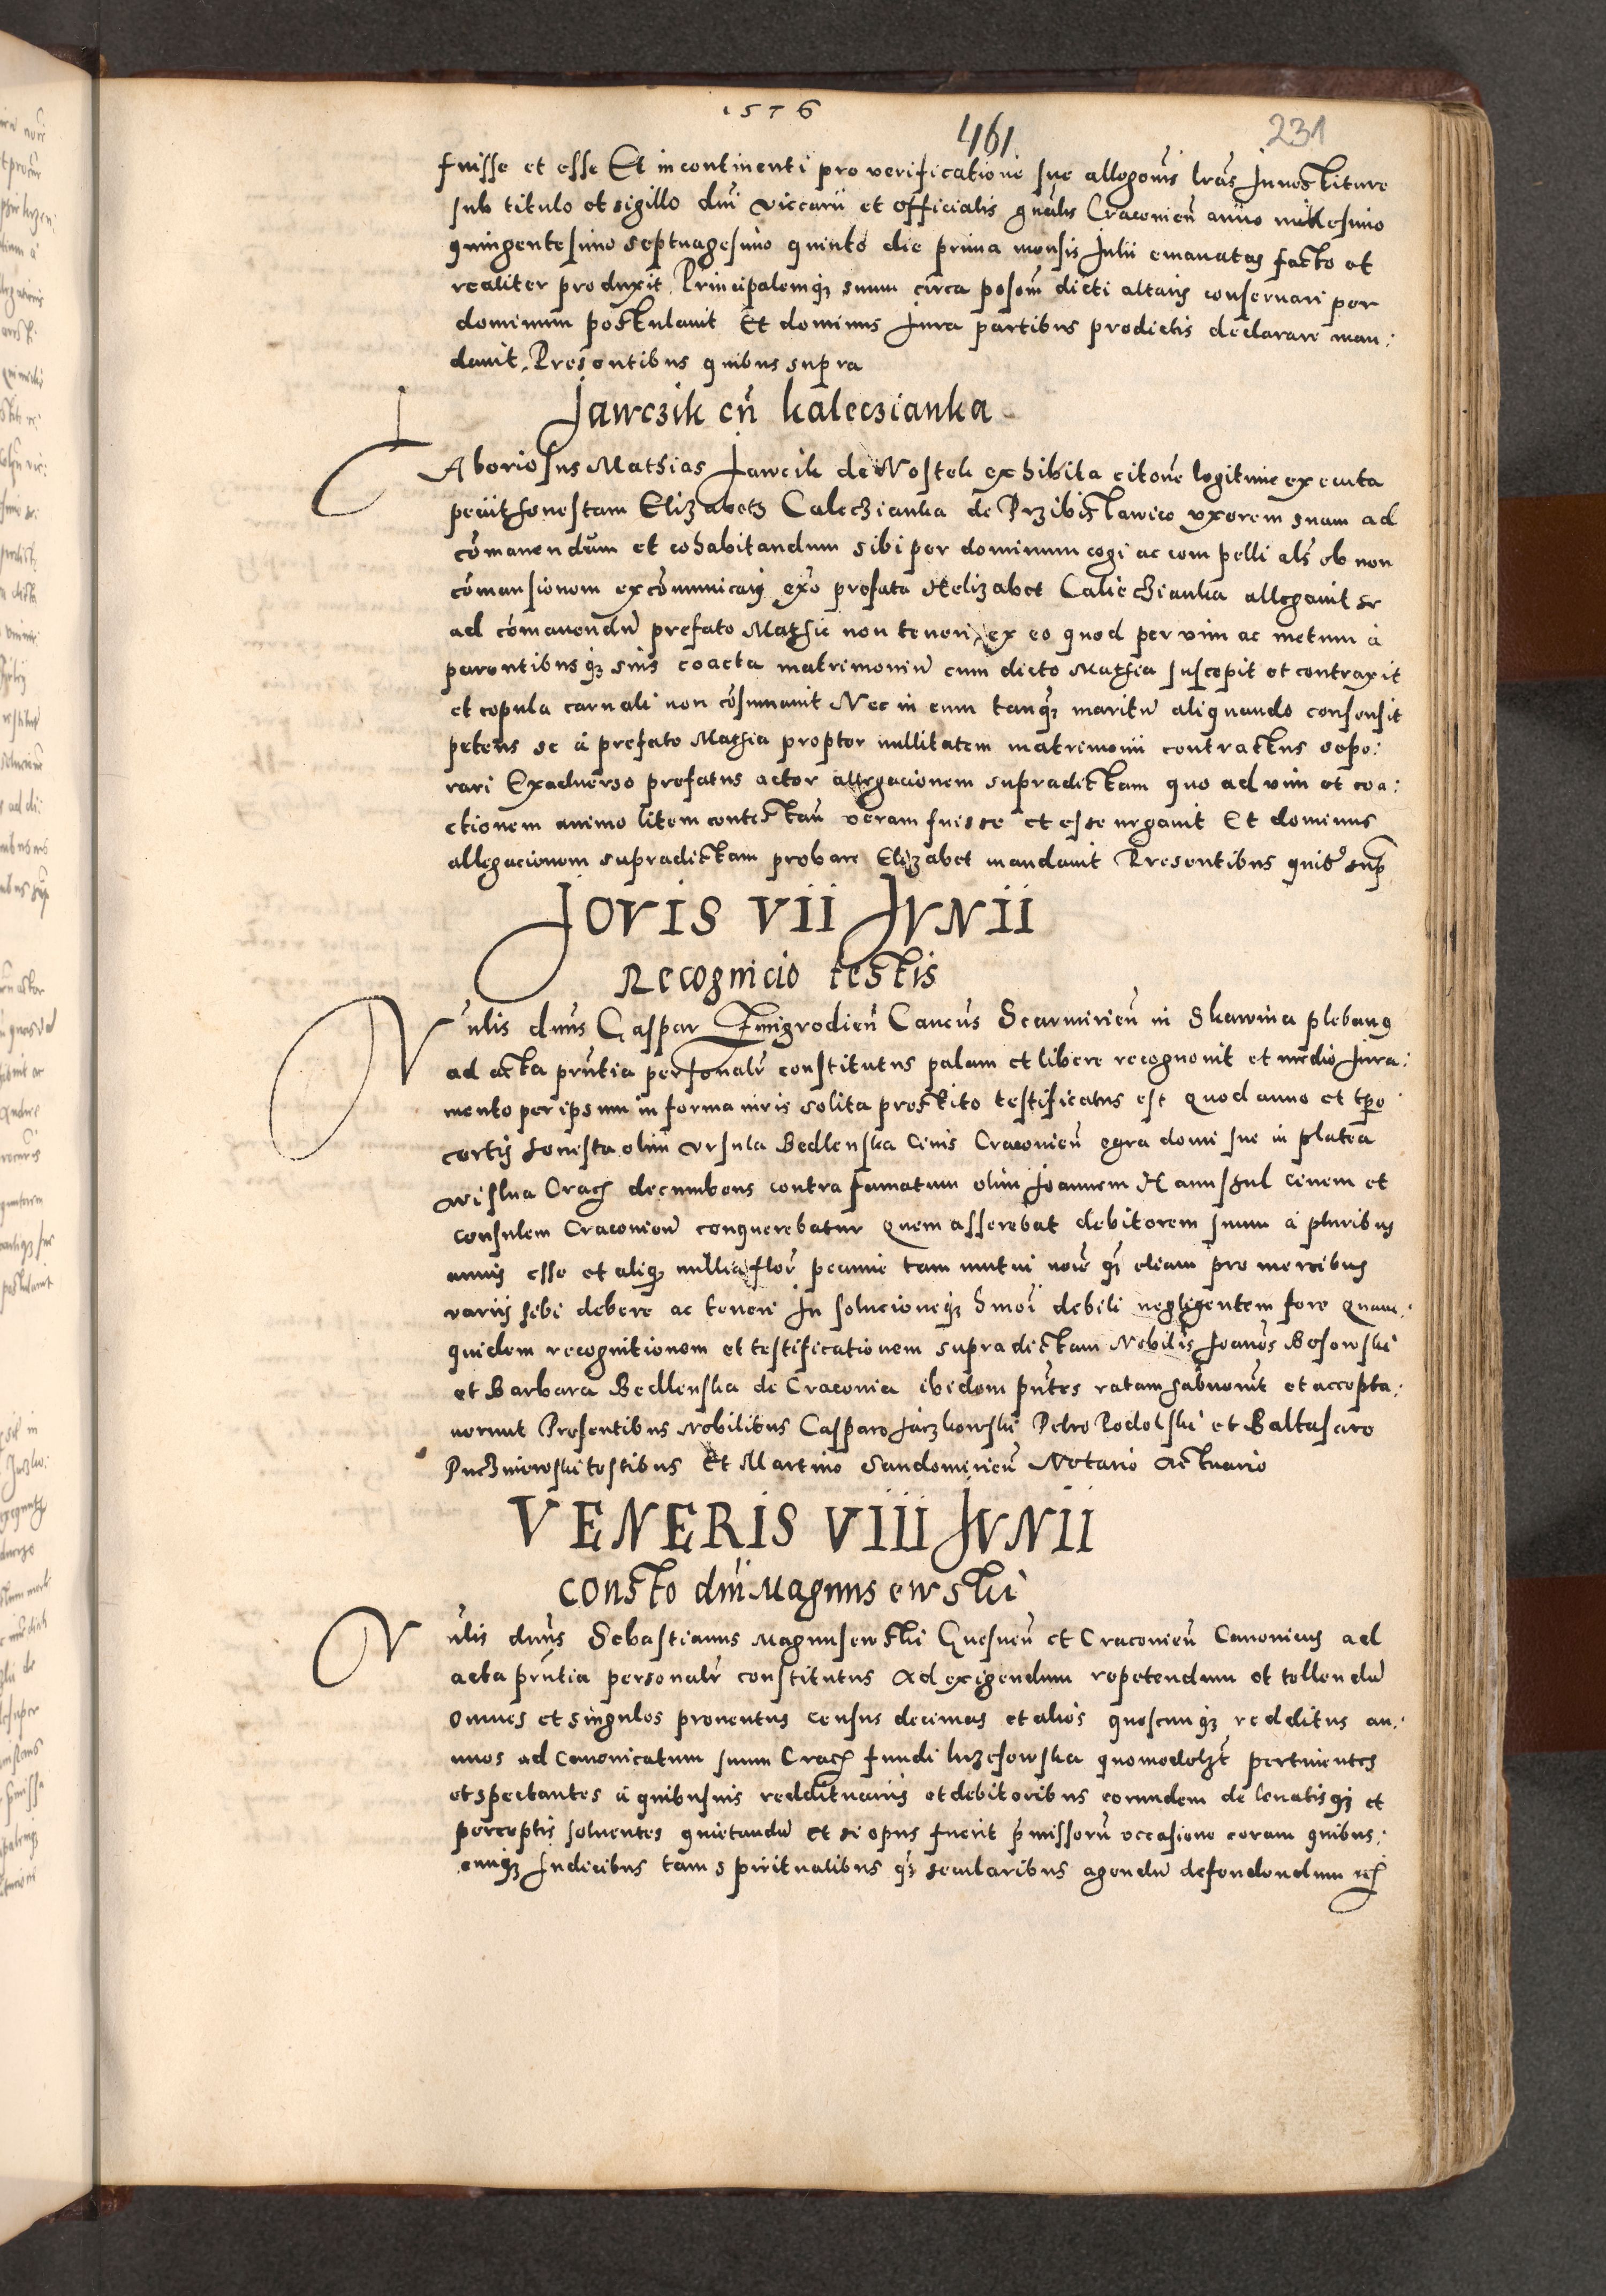 1576
461
231
fuisse et esse Et incontinenti pro verificatione sue allegonis lras Investiture
sub titulo et sigillo dni viccarii et officialis gnalis Cracovien anno millesimo
quingentesimo septuagesimo quinto die prima mensis Julii emanatas facto et
realiter produxit. Principalemq; suum circa possom dicti altaris conservari per
dominum postulavit Et dominus Jura partibus predictis declarare man:
davit. Presentibus quibus supra
Jawczik cn kaleczianka
Laboriosus Mathias Jawcik de Nostek exhibita citone legitime executa
peciit honestam Elizabeth Caleczianka de Przibislawice uxorem suam ad
comanendum et cohabitandum sibi per dominum cogi ac compelli als ob non
comansionem excommunicari exo prefata Helizabet Calieczianka allegavit se
ad comanendu prefato Mathie non teneri ex eo quod per vim ac metum a
parentibusq; suis coacta matrimoniu cum dicto Mathia suscepit et contraxit
et copula carnali non cosumavit Nec in eum tanq; maritu aliquando consensit
petens se a prefato Mathia propter nullitatem matrimonii contractus sepa:
rari Exadverso prefatus actor allegacionem supradictam quo ad vim et coa:
ctionem animo litem contestan veram fuisse et esse negavit Et dominus
allegacionem supradictam probare Elizabet mandavit Presentibus quib sup
JOVIS VII JVNII
Recognicio testis
Vnlis dnus Caspar Zmigrodien Cancus Scarmirien in Skawina plebanus
ad acta prntia personalr constitutus palam et libere recognovit et medio Jura:
mento per ipsum in forma iuris solita prestito testificatus est quod anno et tpe
certis honesta olim Ursula Bedlenska Civis Cracovien egra domi sue in platea
wislna Crac decumbens contra famatum olim Joannem civem et
consulem Cracovien conquerebatur Quem asserebat debitorem suum a pluribus
annis esse et aliq millia flor pecunie tam mutui noie q; etiam pro mercibus
variis sibi debere ac teneri In solucioneq; hmoi debiti negligentem fore Quam:
quidem recognitionem et testificationem supradictam Nobilis Joanes Bosowski
et Barbara Bedlenska de Cracovia ibidem pntes ratam habuerut et accepta:
verunt Presentibus Nobilibus Casparo Jarzkowski Petro Rodolski et Baltasaro
Puczniowski testibus Et Martino Sandomirien Notario Actuario
VENERIS VIII JVNII
consto dni Magnusewski
Vnlis dnus Sebastianus Magnusewski Gnesnen et Cracovien Canonicus ad
acta prntia personalr constitutus Ad exigendum repetendum et tollendu
omnes et singulos proventus census decimas et alios quoscunq; redditus an:
nuos ad Canonicatum suum Crac fundi luzesowska quomodolzt pertinentes
et spectantes a quibusvis reddituariis et debitoribus eorundem de levatisq; et
perceptis solventes quietandu et si opus fuerit pmissoru occasione coram quibus:
cunq; Judicibus tam spiritualibus q; secularibus agendu defendendum etc